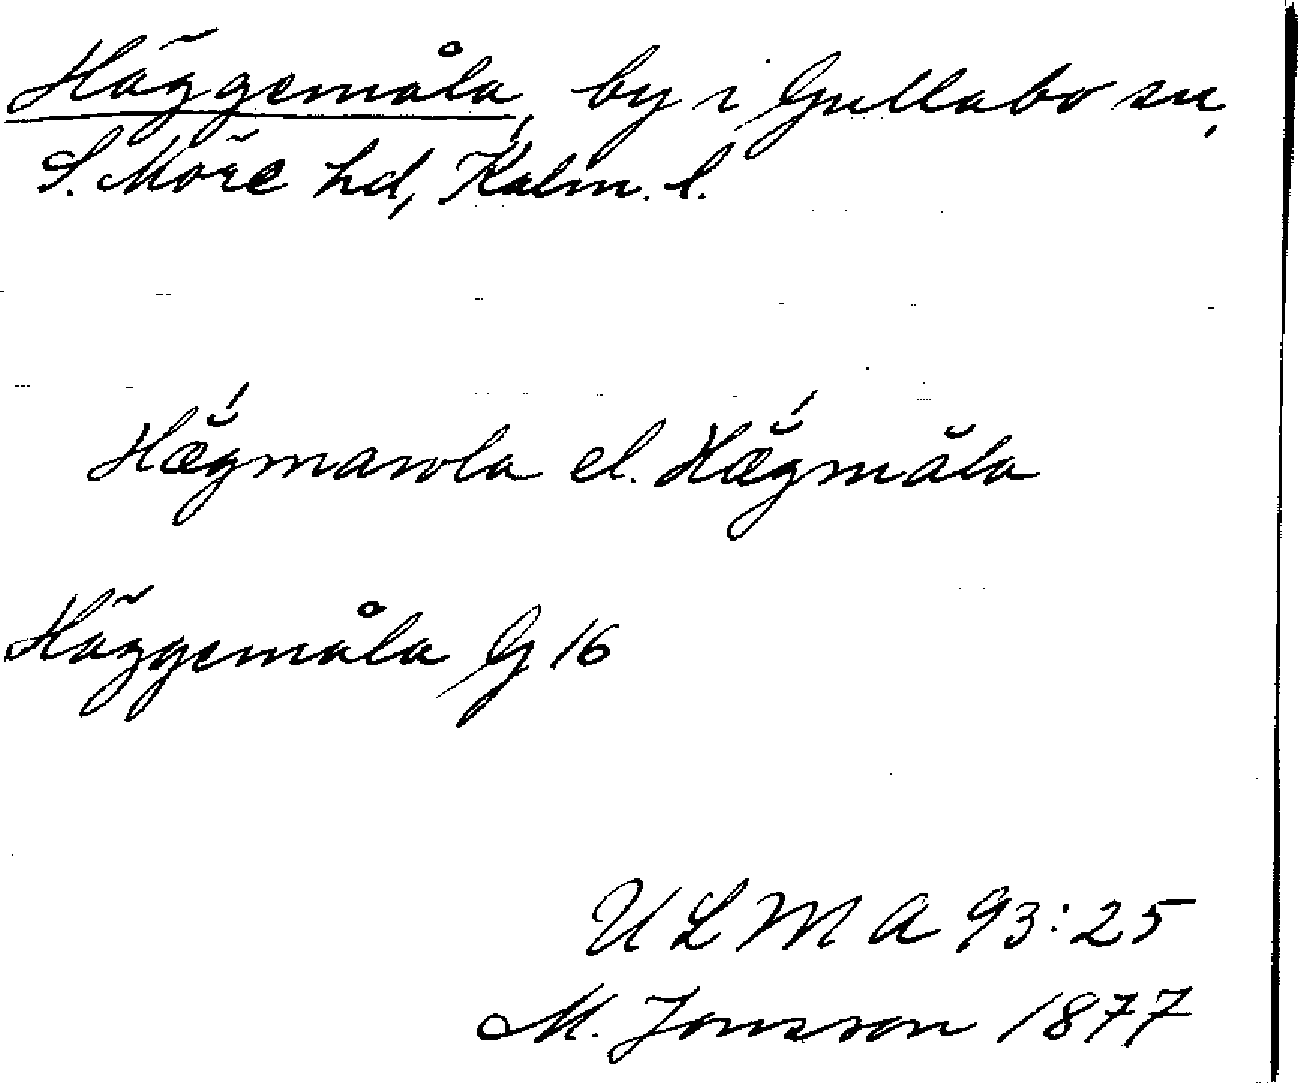 Häggemåla, by i Gullabo sn,
S. Möre hd, Kalm. l.
Hæ̆́gmawla el. Hæ̆́gmăla
Häggemåla G 16
ULMA 93:25
M. Jonsson 1877